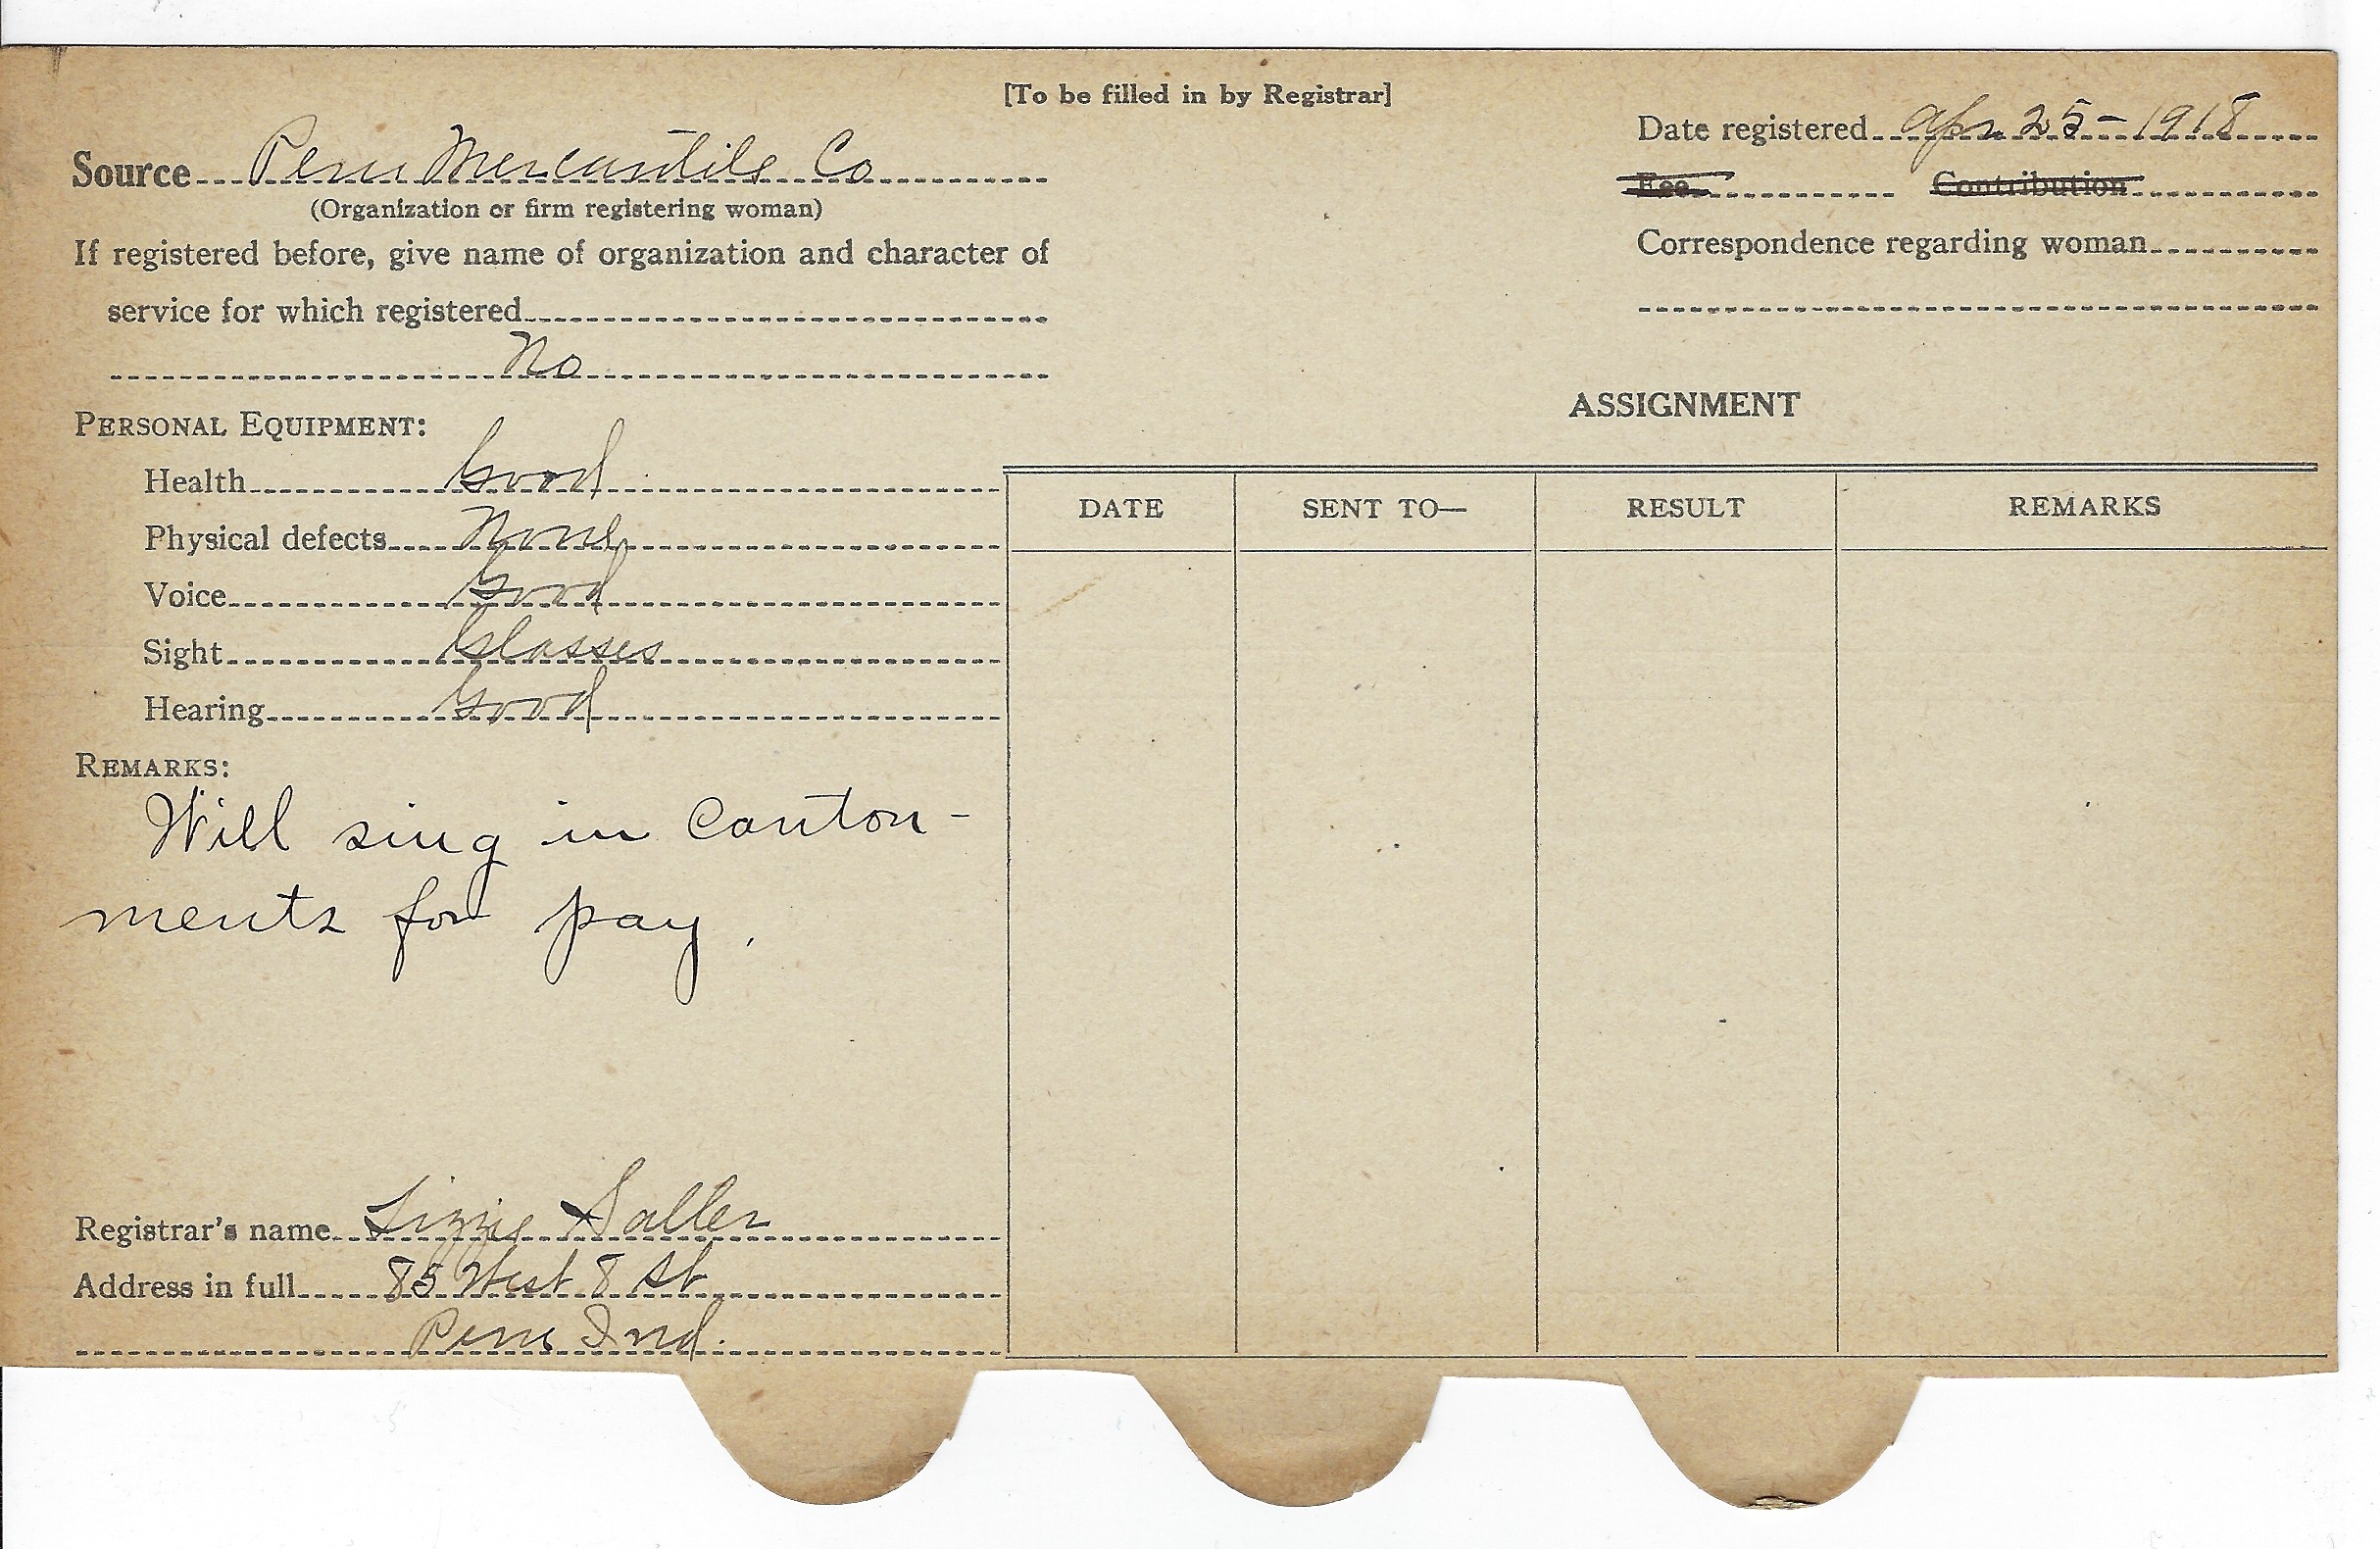 [To be filled in by Registrar]
Source Peru Mercantile Co
(Organization or firm registering woman)
If registered before, give name of organization and character of
service for which registered
No
Date registered Apr 25-1918
Fee Contribution
Correspondence regarding woman
PERSONAL EQUIPMENT:
Health Good
Physical defects None
Voice Good
Sight Glasses
Hearing Good
REMARKS:
Will sing in Canton-
ments for pay.
Registrar's name Lizzie Saller
Address in full 85 West 8 St
Peru Ind.
ASSIGNMENT
DATE SENT TO— RESULT REMARKS